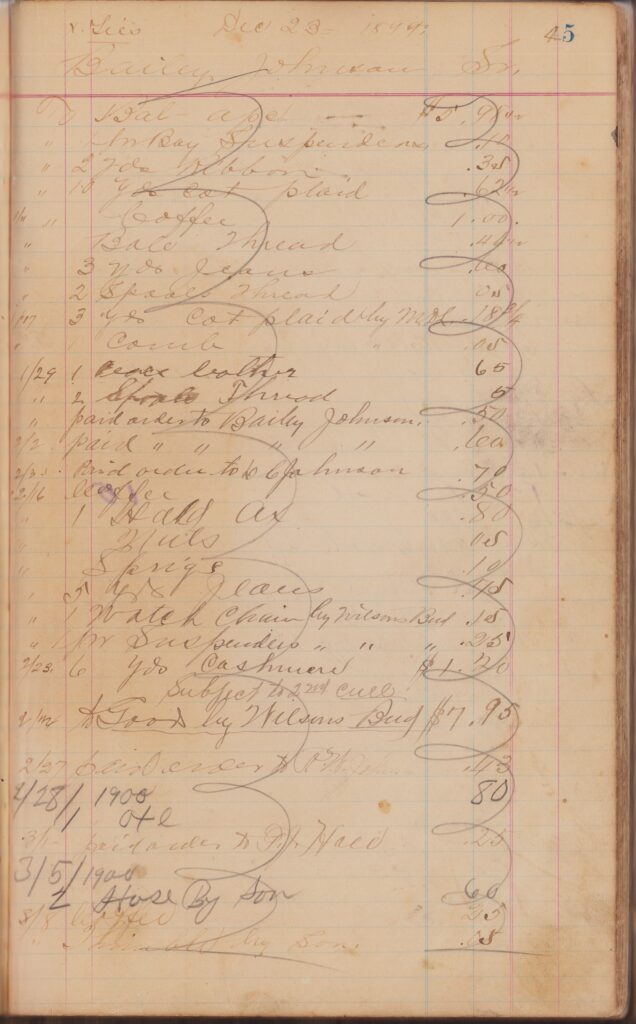 45
Dec 23
Bailey Johnson Sr.
" 1 Pr Boy Suspenders .10
" 2 yds Ribbon .35
" 10 yds cot plaid
" Coffee 1.00
" Thread
" 3 yds Jeans .60
" 2 Spools Thread 05
3 yds cot plaid by .18 3/4
" 1 Comb " .05
1/29 1 65
" 2 Spools Thread 5
" paid order to Bailey Johnson. .50
2/2 paid " " " " .60
paid order to Johnson .70
2/6 Coffee .50
" 1 Hand Ax .80
" Nails .05
" .10
" 5 yds Jeans .45
" 1 Watch Chain by Wilsons Bud .15
" 1 Pr Suspenders " " " .25
2/23. 6 yds Cashmere $1.20
Subject to 2nd call
to Goods by Wilsons Bud $7.95
2/27 paid order to .43
2/28/1900 80
1
3/1 paid order to .25
3/5/1900
2 Hose By Son 60
3/8 Coffee 25
" by Son. .05